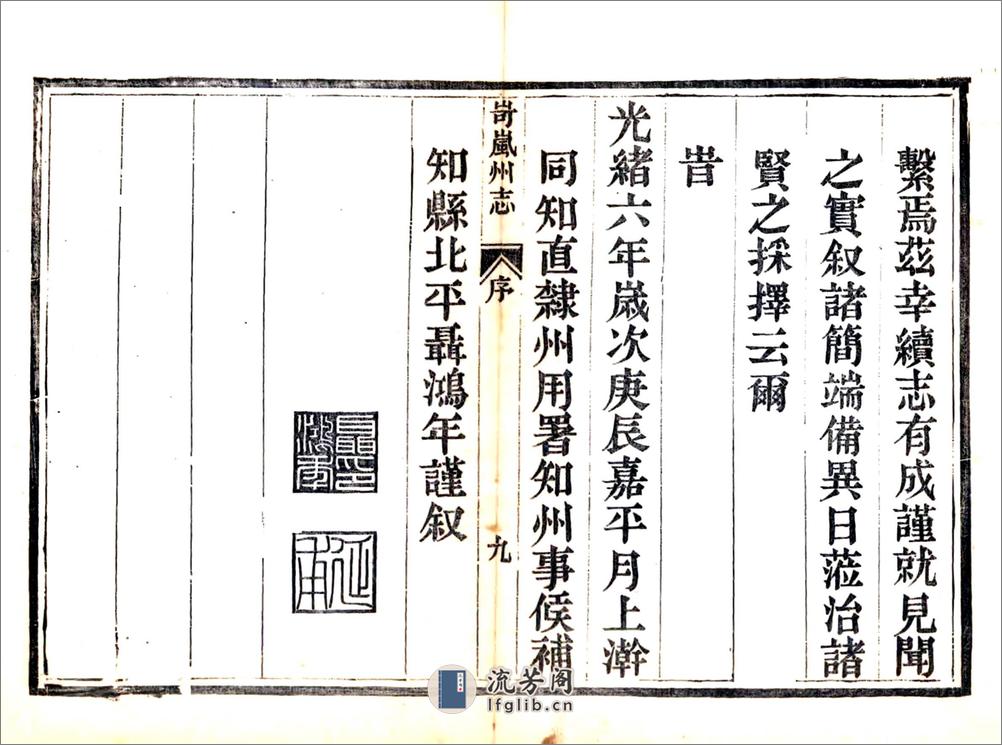 繫焉茲幸續志有成謹就見聞
之實叙諸簡端備異日蒞治諸
賢之採擇云爾
旹
光緒六年歲次庚辰嘉平月上澣
同知直隸州用署知州事候補
岢嵐州志 序 九
知縣北平聶鴻年謹叙
延甫
流芳阁
lfglib.cn